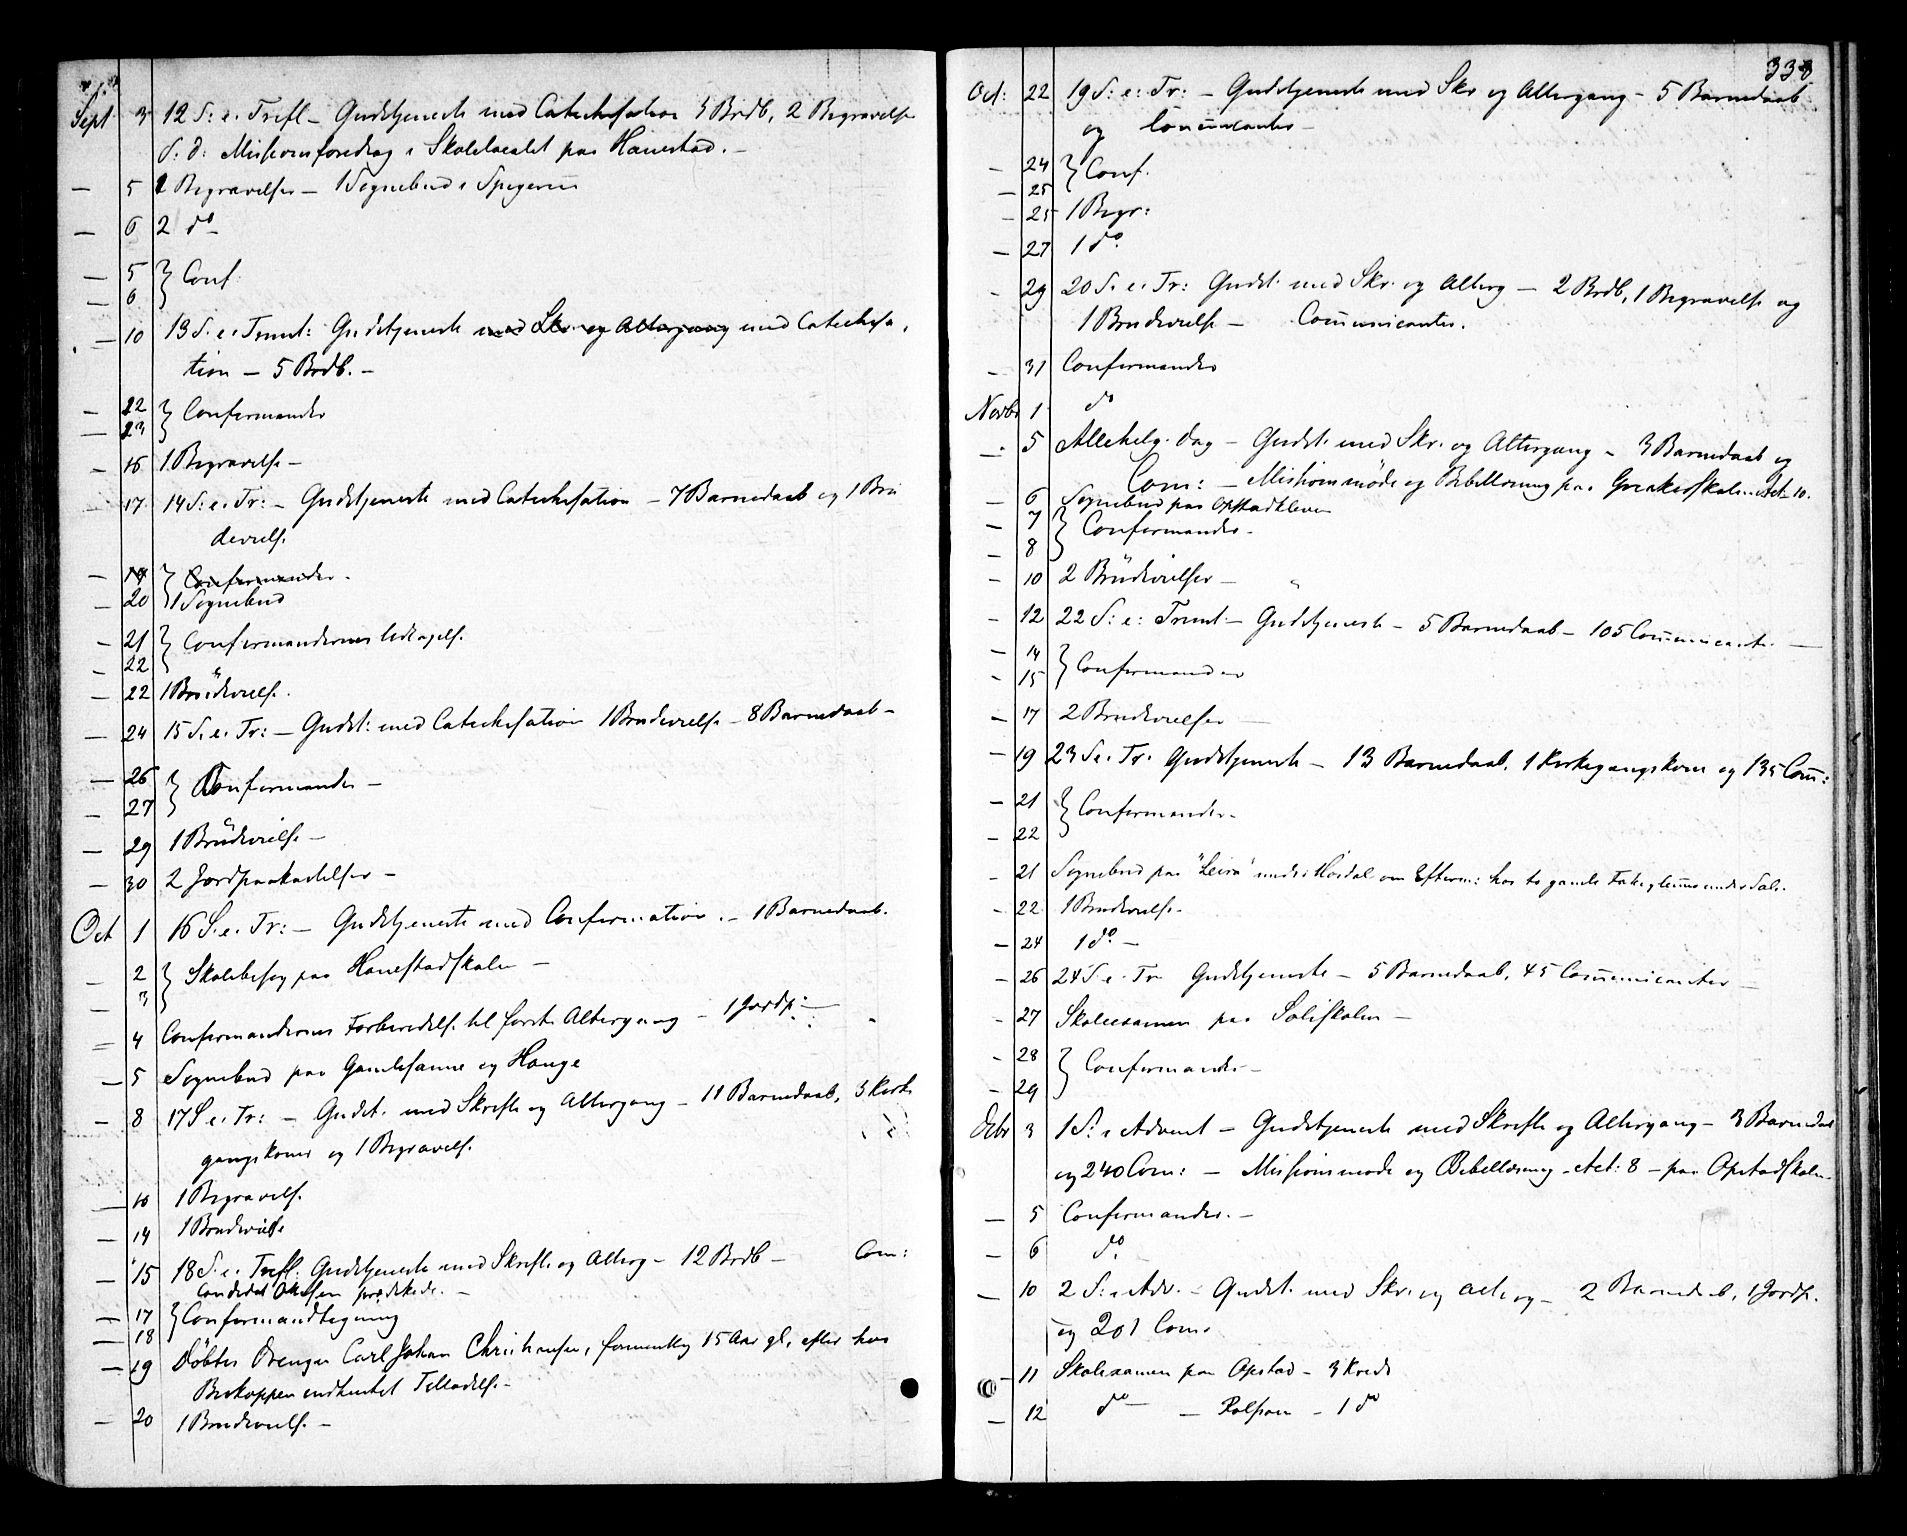 Sept 3 12 S: e. Trefl – Gudstjeneste med Catechesation 5 Brdb, 2 Begravelser
S. d: Missionsforedrag i Skolelocalet paa Hanestad. –
— 5 1 Begravelse – 1 Sognebud i
— 6 2 do –
— 5 } Conf.
— 6
— 10 13 S. e. Trinit: Gudstjeneste med Skr. og Altergang med Catechesa-
tion – 5 Brdb. –
— 12 } Confirmander
— 13
— 16 1 Begravelse –
17. 14 S: e. Tr: – Gudstjeneste med Catechesation – 7 Barnedaab og 1 Bru
devielse.
— 19 } Confirmander.
— 20 1 Sognebud
— 21 } Confirmandernes Udtagelse.
— 22
— 22 1 Brudevielse.
— 24 15 S. e. Tr: – Gudst: med Catechesation 1 Brudevielse – 8 Barnedaab –
— 26 } Confirmander –
— 27
— 29 1 Brudevielse –
— 30 2 Jordpaakastelser –
Oct 1 16 S. e. Tr: – Gudstjeneste med Confirmation. – 1 Barnedaab.
— 2 } Skolebesøg paa Hanestadskolen –
— 3
— 4 Confirmandernes Forberedelse til første Altergang – 1 Jordp: –
— 5 Sognebud paa og Hauge
— 8 17 S e. Tr: – Gudst. med Skrifte og Altergang – 11 Barnedaab, 3 Kirke
gangskoner og 1 Begravelse.
— 10 1 Begravelse.
— 14 1 Brudevielse
— 15 18 S. e. Trefl: Gudstjeneste med Skrifte og Alterg – 12 Brdb – Com:
Candidat prædikede. –
— 17 } Confirmandtegning
— 18
— 19 Døbtes Drengen Carl Johan Christensen, 15 Aar gl, efter hos
Biskoppen indhentet Tilladelse. –
— 20 1 Brudevielse. –
338
Oct: 22 19 S: e: Tr: – Gudstjeneste med Skr og Altergang – 5 Barnedaab
og Communicanter –
— 24 } Conf.
— 25
— 25 1 Begr:
— 27 1 do.
— 29 20 S. e. Tr: Gudst. med Skr. og Alterg – 2 Brdb, 1 Begravelse og
1 Brudevielse – Communicanter.
— 31 Confirmander
Novbr 1 do
— 5 Allehelg. Dag – Gudst. med Skr. og Altergang – 3 Barnedaab og
Com: – Missionsmøde og Bibellæsning paa Act 10.
— 6 Sognebud paa Opstadkleven
— 7 } Confirmander –
— 8
— 10 2 Brudevielser –
— 12 22 S: e: Trinit – Gudstjeneste – 5 Barnedaab – 105 Communicanter. –
— 14 } Confirmander
— 15
— 17 2 Brudevielser
— 19 23 S e. Tr. Gudstjeneste – 13 Barnedaab, 1 Kirkegangskone og 135 Com:
— 21 } Confirmander –
— 22
— 21 Sognebud paa "Leira" under om Efterm: hos to gamle under
— 22 1 Brudevielse –
— 24 1 do. –
— 26 24 S. e. Tr Gudstjeneste – 5 Barnedaab, 45 Communicanter –
— 27 Skoleexamen paa –
— 28 } Confirmander –
— 29
Debr 3 1 S: i Advent – Gudstjeneste med Skrifte og Altergang – 3 Barnedaab
og 240 Com: – Missionsmøde og Bibellæsning – Act: 8 – paa Opstadskolen.
— 5 Confirmander. –
— 6 do.
— 10 2 S: i Adv. – Gudst. med Skr. og Alterg – 2 Barnedaab, 1 Jordp.
og 201 Com.
— 11 Skoleexamen paa Opstad – 3 Kreds
— 12 do – 1 do